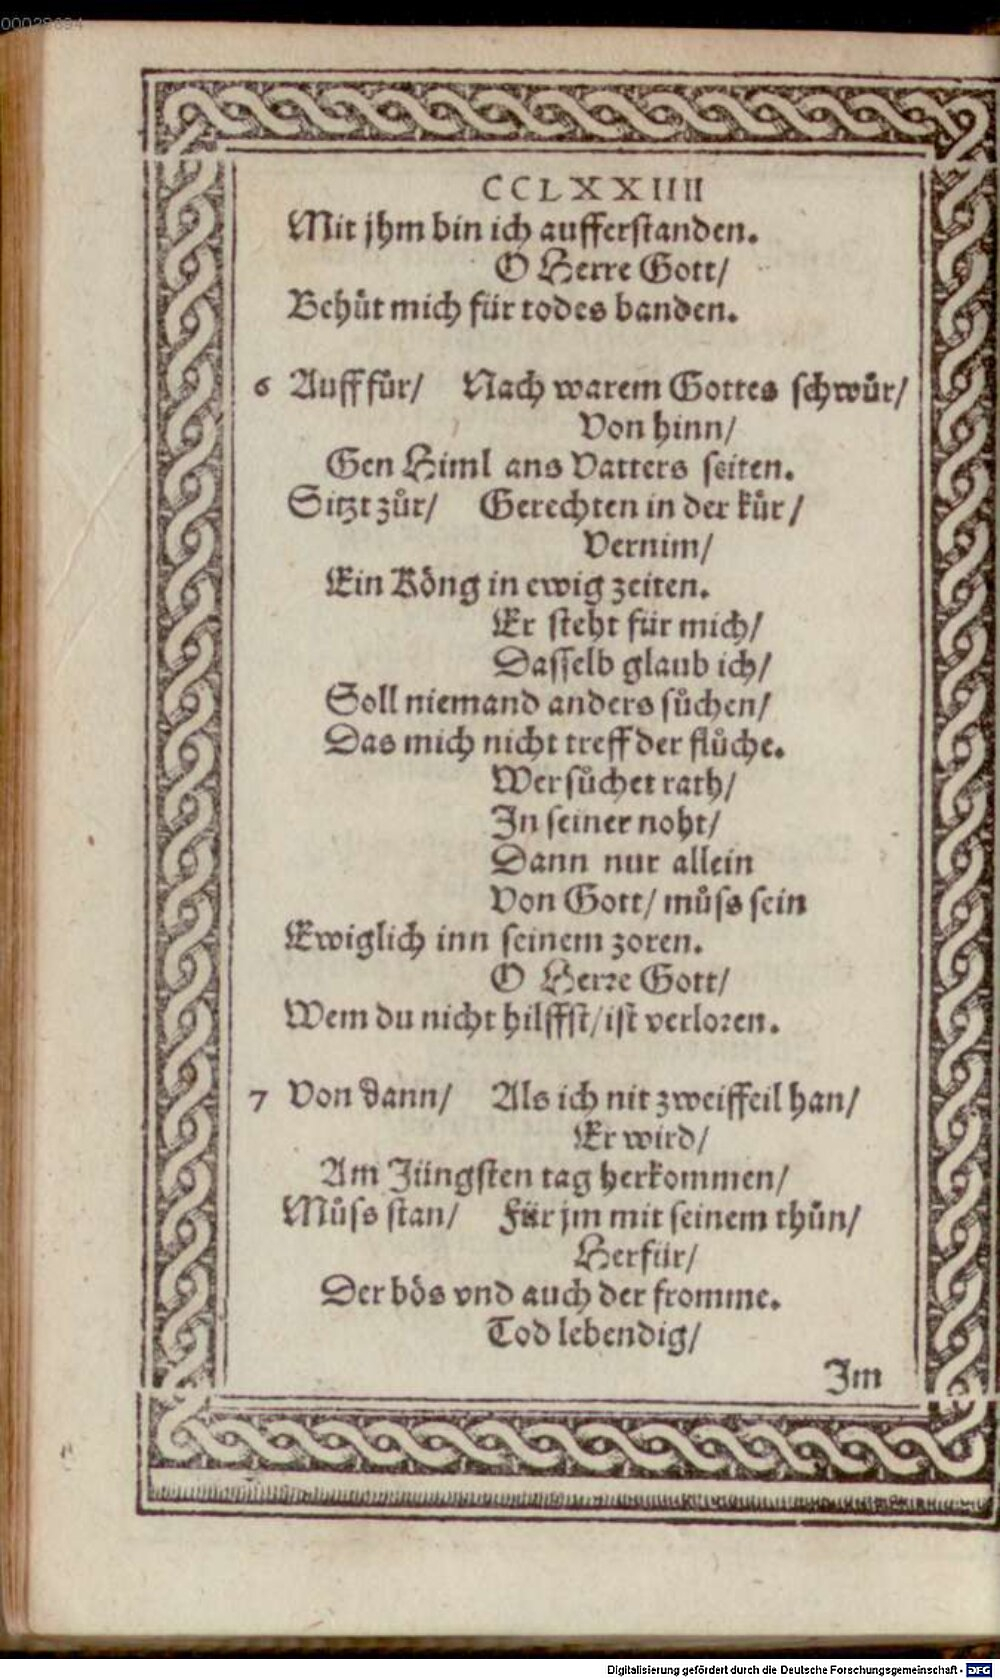 00028694
CCLXXIIII
Mit jhm bin ich aufferstanden.
O Herre Gott/
Behüt mich für todes banden.
6 Auff fůr/ Nach warem Gottes schwůr/
Von hinn/
Gen Himl ans Vatters seiten.
Sitzt zůr/ Gerechten in der kůr/
Vernim/
Ein Köng in ewig zeiten.
Er steht für mich/
Dasselb glaub ich/
Soll niemand anders sůchen/
Das mich nicht treff der flůche.
Wer sůchet rath/
In seiner noht/
Dann nur allein
Von Gott/ můss sein
Ewiglich inn seinem zoren.
O Herre Gott/
Wem du nicht hilffst/ist verloren.
7 Von dann/ Als ich nit zweiffeil han/
Er wird/
Am Jüngsten tag herkommen/
Můss stan/ Für jm mit seinem thůn/
Herfür/
Der bös vnd auch der fromme.
Tod lebendig/
Im
Digitalisierung gefördert durch die Deutsche Forschungsgemeinschaft - DFG